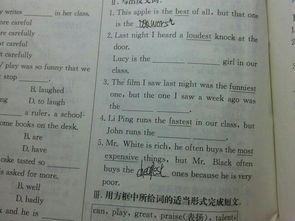 y writes ______ in her class.
re careful
t careful
careful
/ play was so funny that we
stop ______.
B. laughed
D. to laugh
a ruler, a school-
ome books on the desk.
B. are
D. have
cake tasted so ______
s asked for more.
B. well
D. badly
k and he is ______
1. This apple is the best of all, but that one
is the the worst
2. Last night I heard a loudest knock at the
door.
Lucy is the ______ girl in our
class.
3. The film I saw last night was the funniest
one, but the one I saw a week ago was
the ______.
4. Li Ping runs the fastest in our class, but
John runs the ______.
5. Mr. White is rich, he often buys the most
expensive things, but Mr. Black often
buys the ones because he is very
poor.
Ⅲ. 用方框中所给词的适当形式完成短文.
can, play, great, praise(表扬), talented